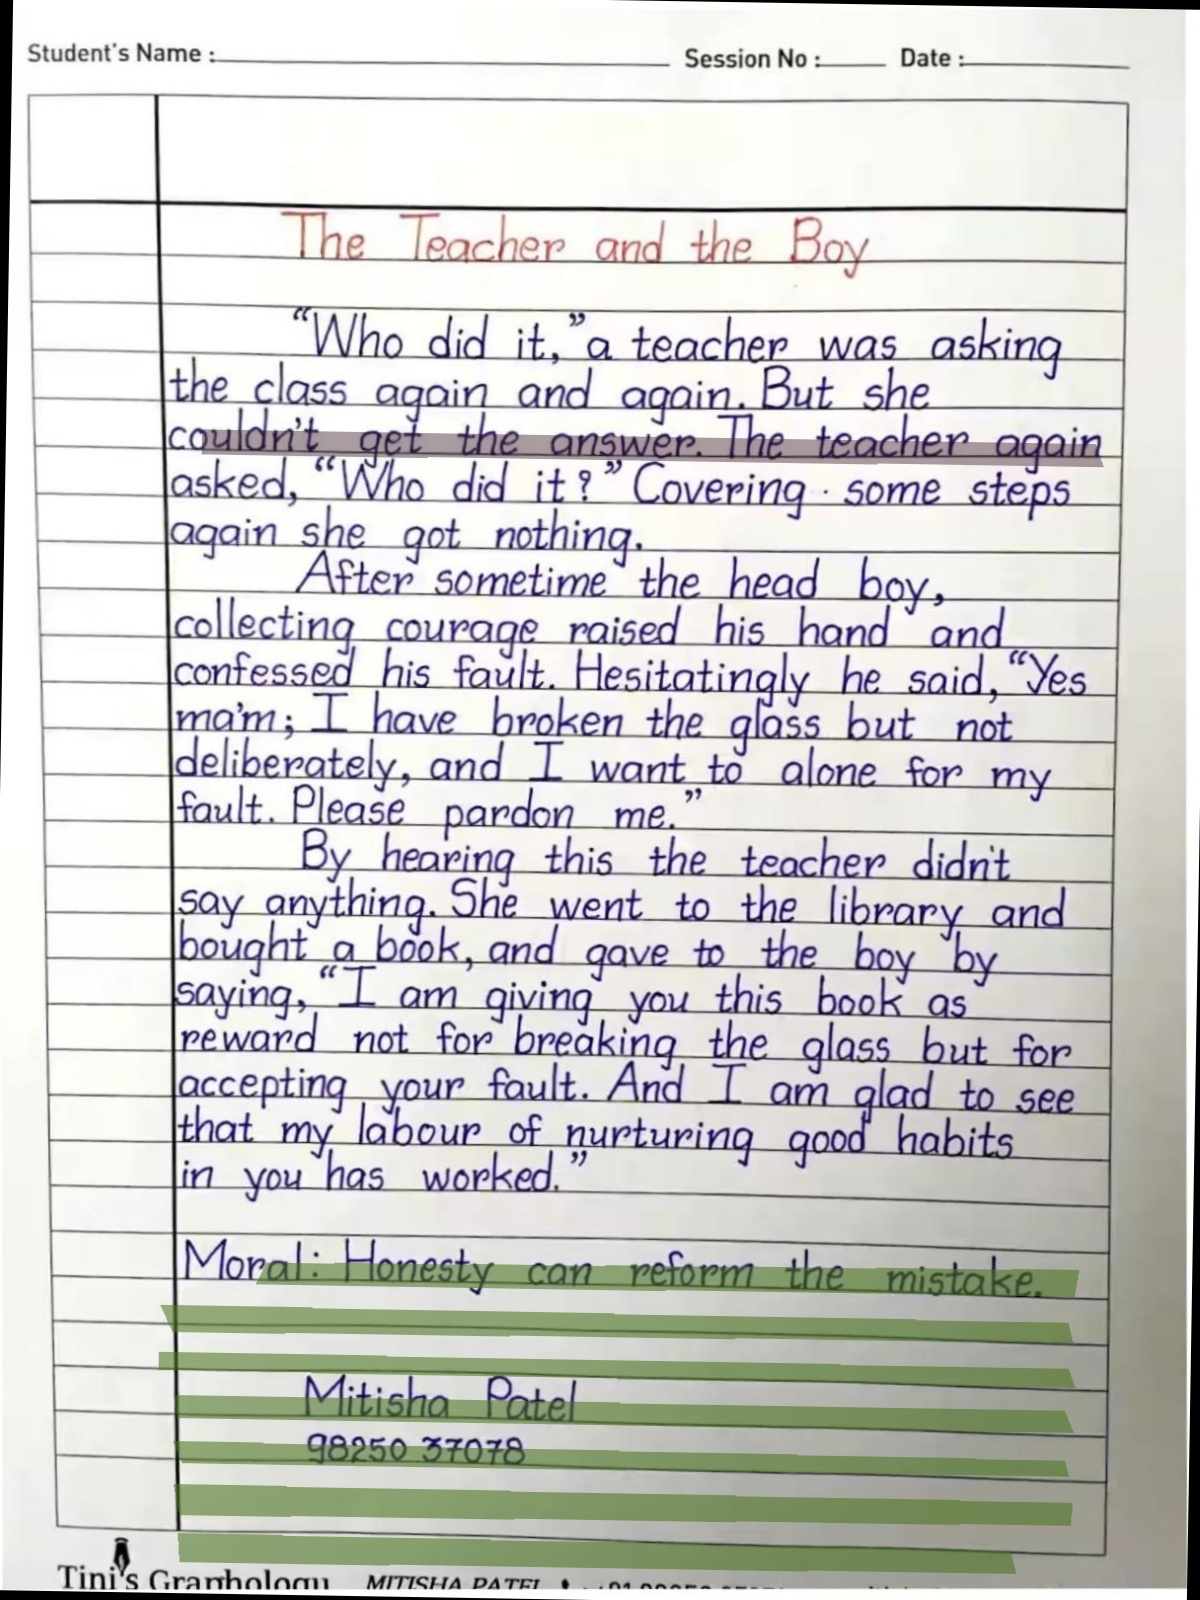 Student's Name :
Session No :
Date :
The Teacher and the Boy
“Who did it,” a teacher was asking
the class again and again. But she
couldn't get the answer. The teacher again
asked, “Who did it?” Covering some steps
again she got nothing.
After sometime the head boy,
collecting courage raised his hand and
confessed his fault. Hesitatingly he said, “Yes
ma'm; I have broken the glass but not
deliberately, and I want to alone for my
fault. Please pardon me.”
By hearing this the teacher didn't
say anything. She went to the library and
bought a book, and gave to the boy by
saying, “I am giving you this book as
reward not for breaking the glass but for
accepting your fault. And I am glad to see
that my labour of nurturing good habits
in you has worked.”
Moral: Honesty can reform the mistake.
Mitisha Patel
98250 37078
Tini's Graphology MITISHA PATEL